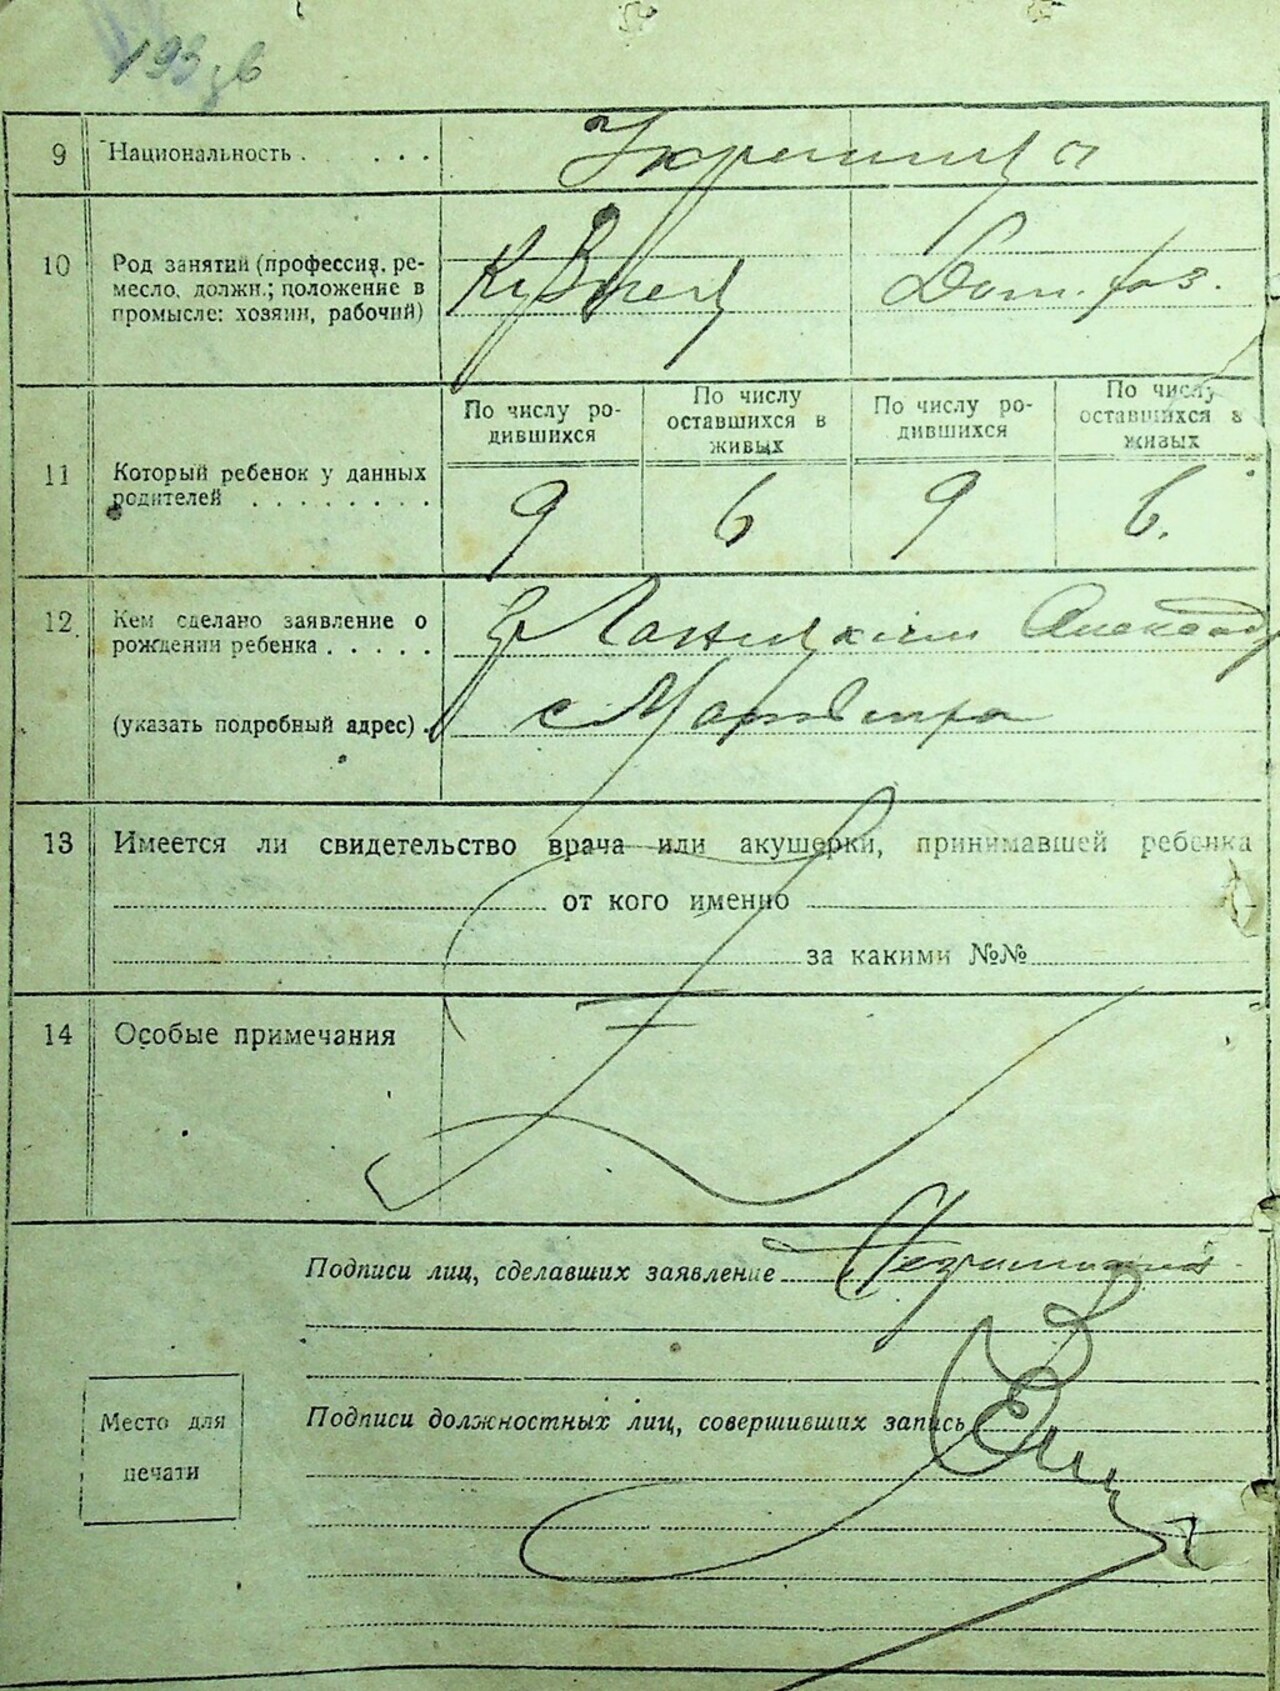 9 Национальность . . . . Украинцы
10 Род занятий (профессия, ре-
месло, должн.; положение в
промысле: хозяин, рабочий)
Кузнец Дом. хоз.
11 Который ребенок у данных
родителей . . . . . . . .
По числу ро-
дившихся
По числу
оставшихся в
живых
По числу ро-
дившихся
По числу
оставшихся в
живых
9 6 9 6.
12 Кем сделано заявление о
рождении ребенка . . . . .
(указать подробный адрес) .
13 Имеется ли свидетельство врача или акушерки, принимавшей ребенка
от кого именно
за какими №№
14 Особые примечания
Подписи лиц, сделавших заявление
Подписи должностных лиц, совершивших запись
Место для
печати